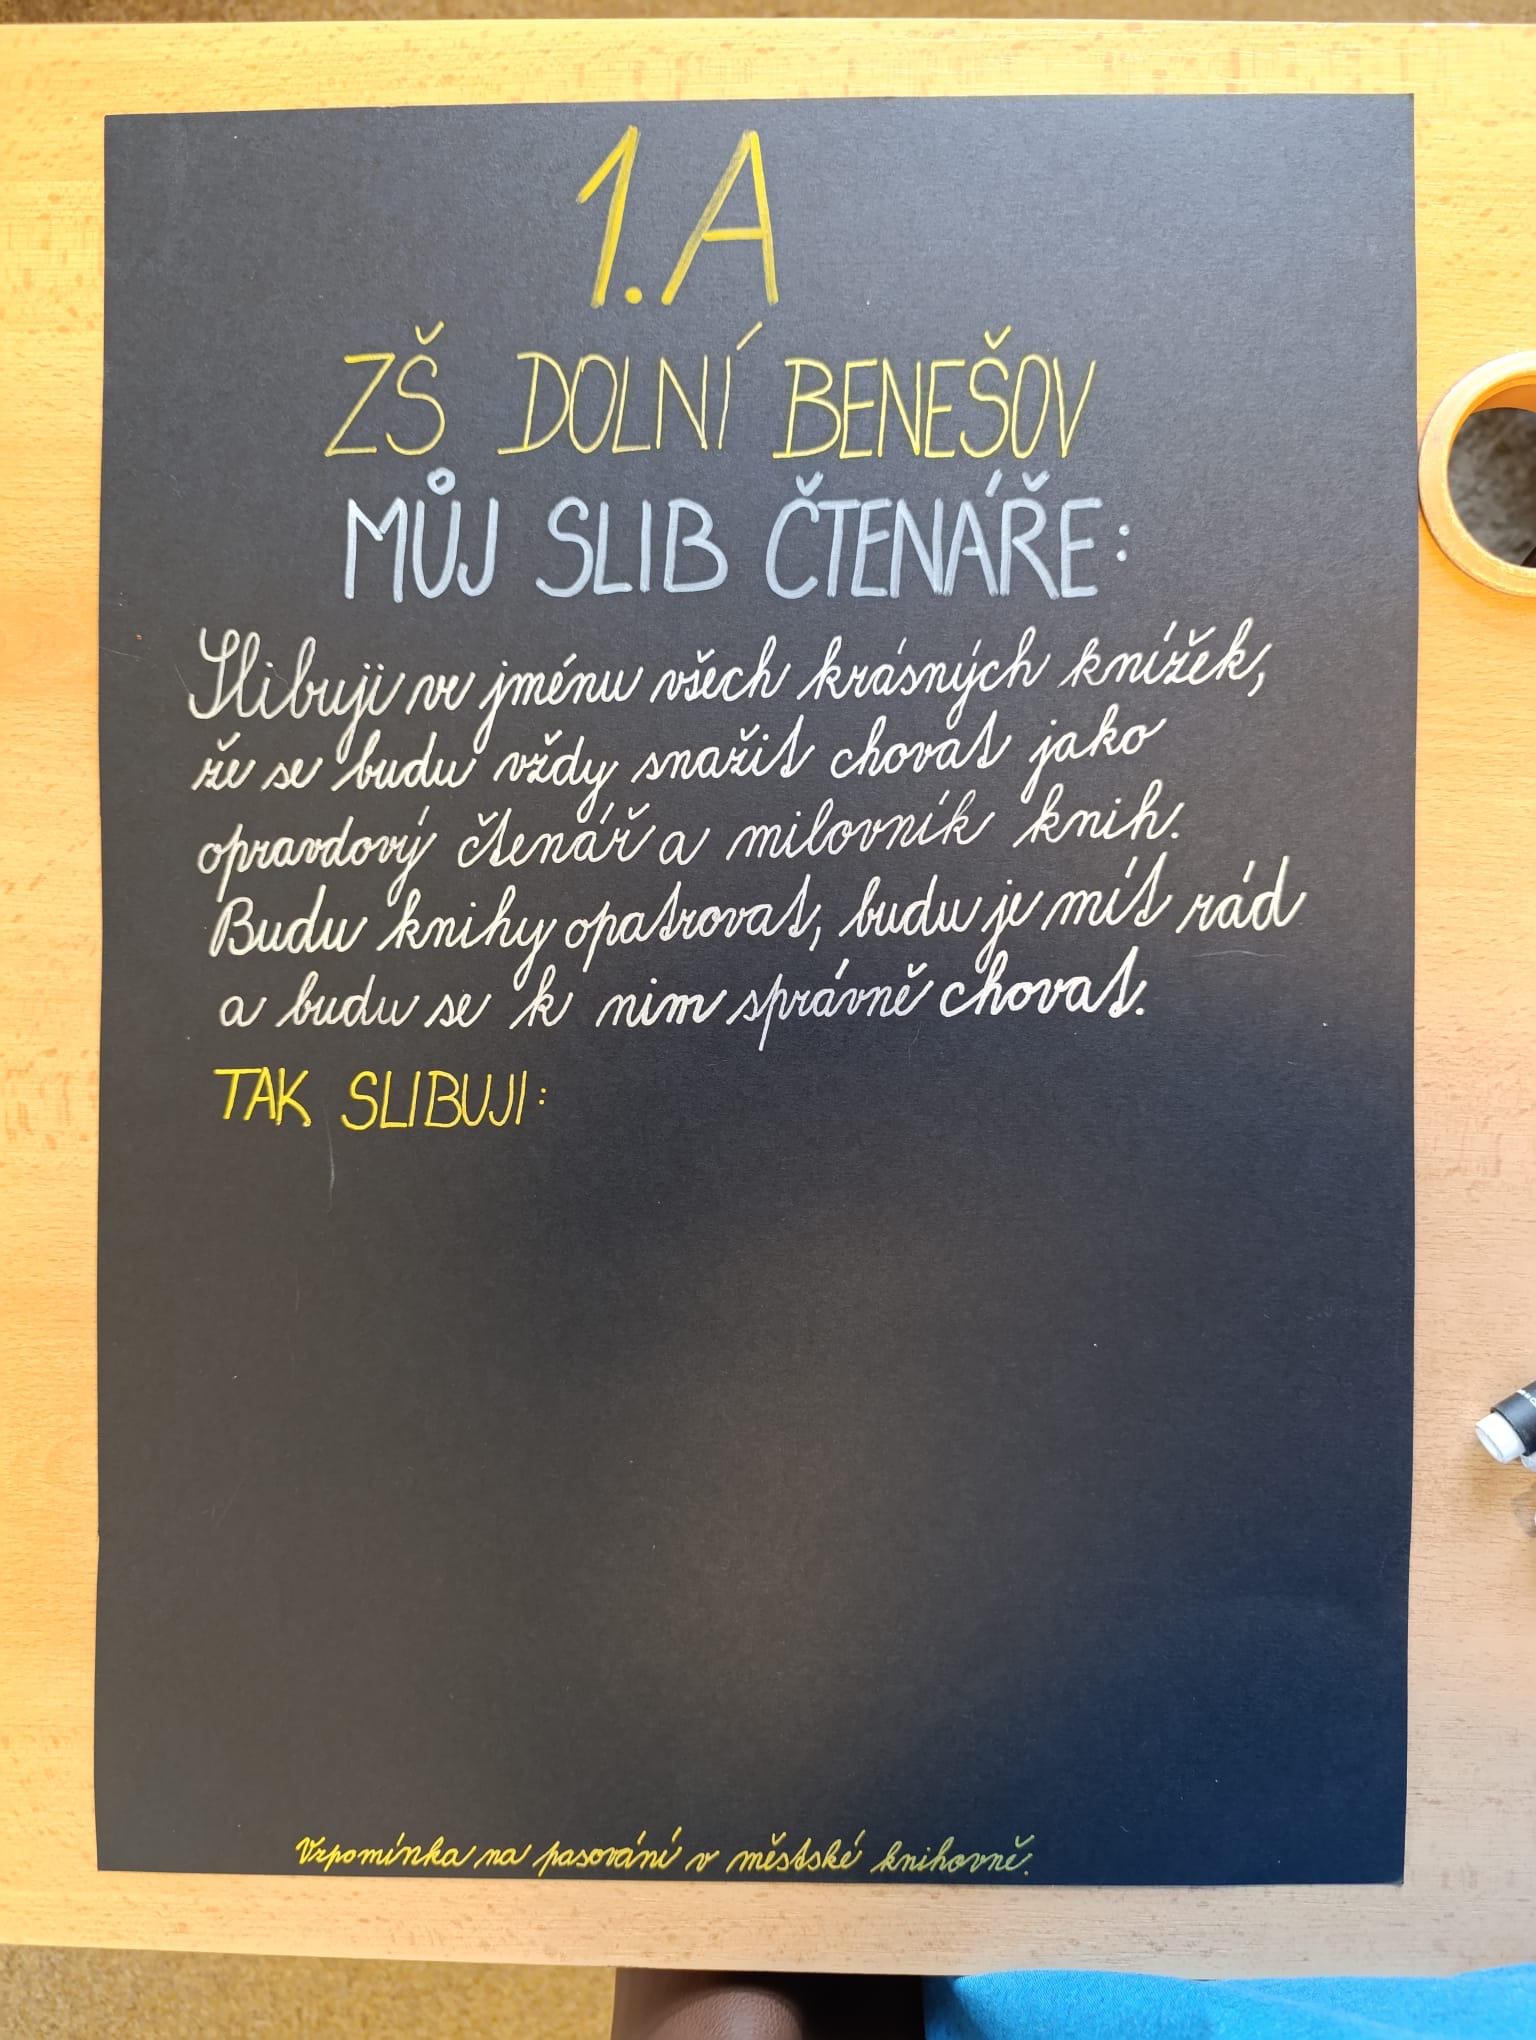 1.A
ZŠ DOLNÍ BENEŠOV
MŮJ SLIB ČTENÁŘE:
Slibuji ve jménu všech krásných knížek,
že se budu vždy snažit chovat jako
opravdový čtenář a milovník knih.
Budu knihy opatrovat, budu je mít rád
a budu se k nim správně chovat.
TAK SLIBUJI:
Vzpomínka na pasování v městské knihovně.